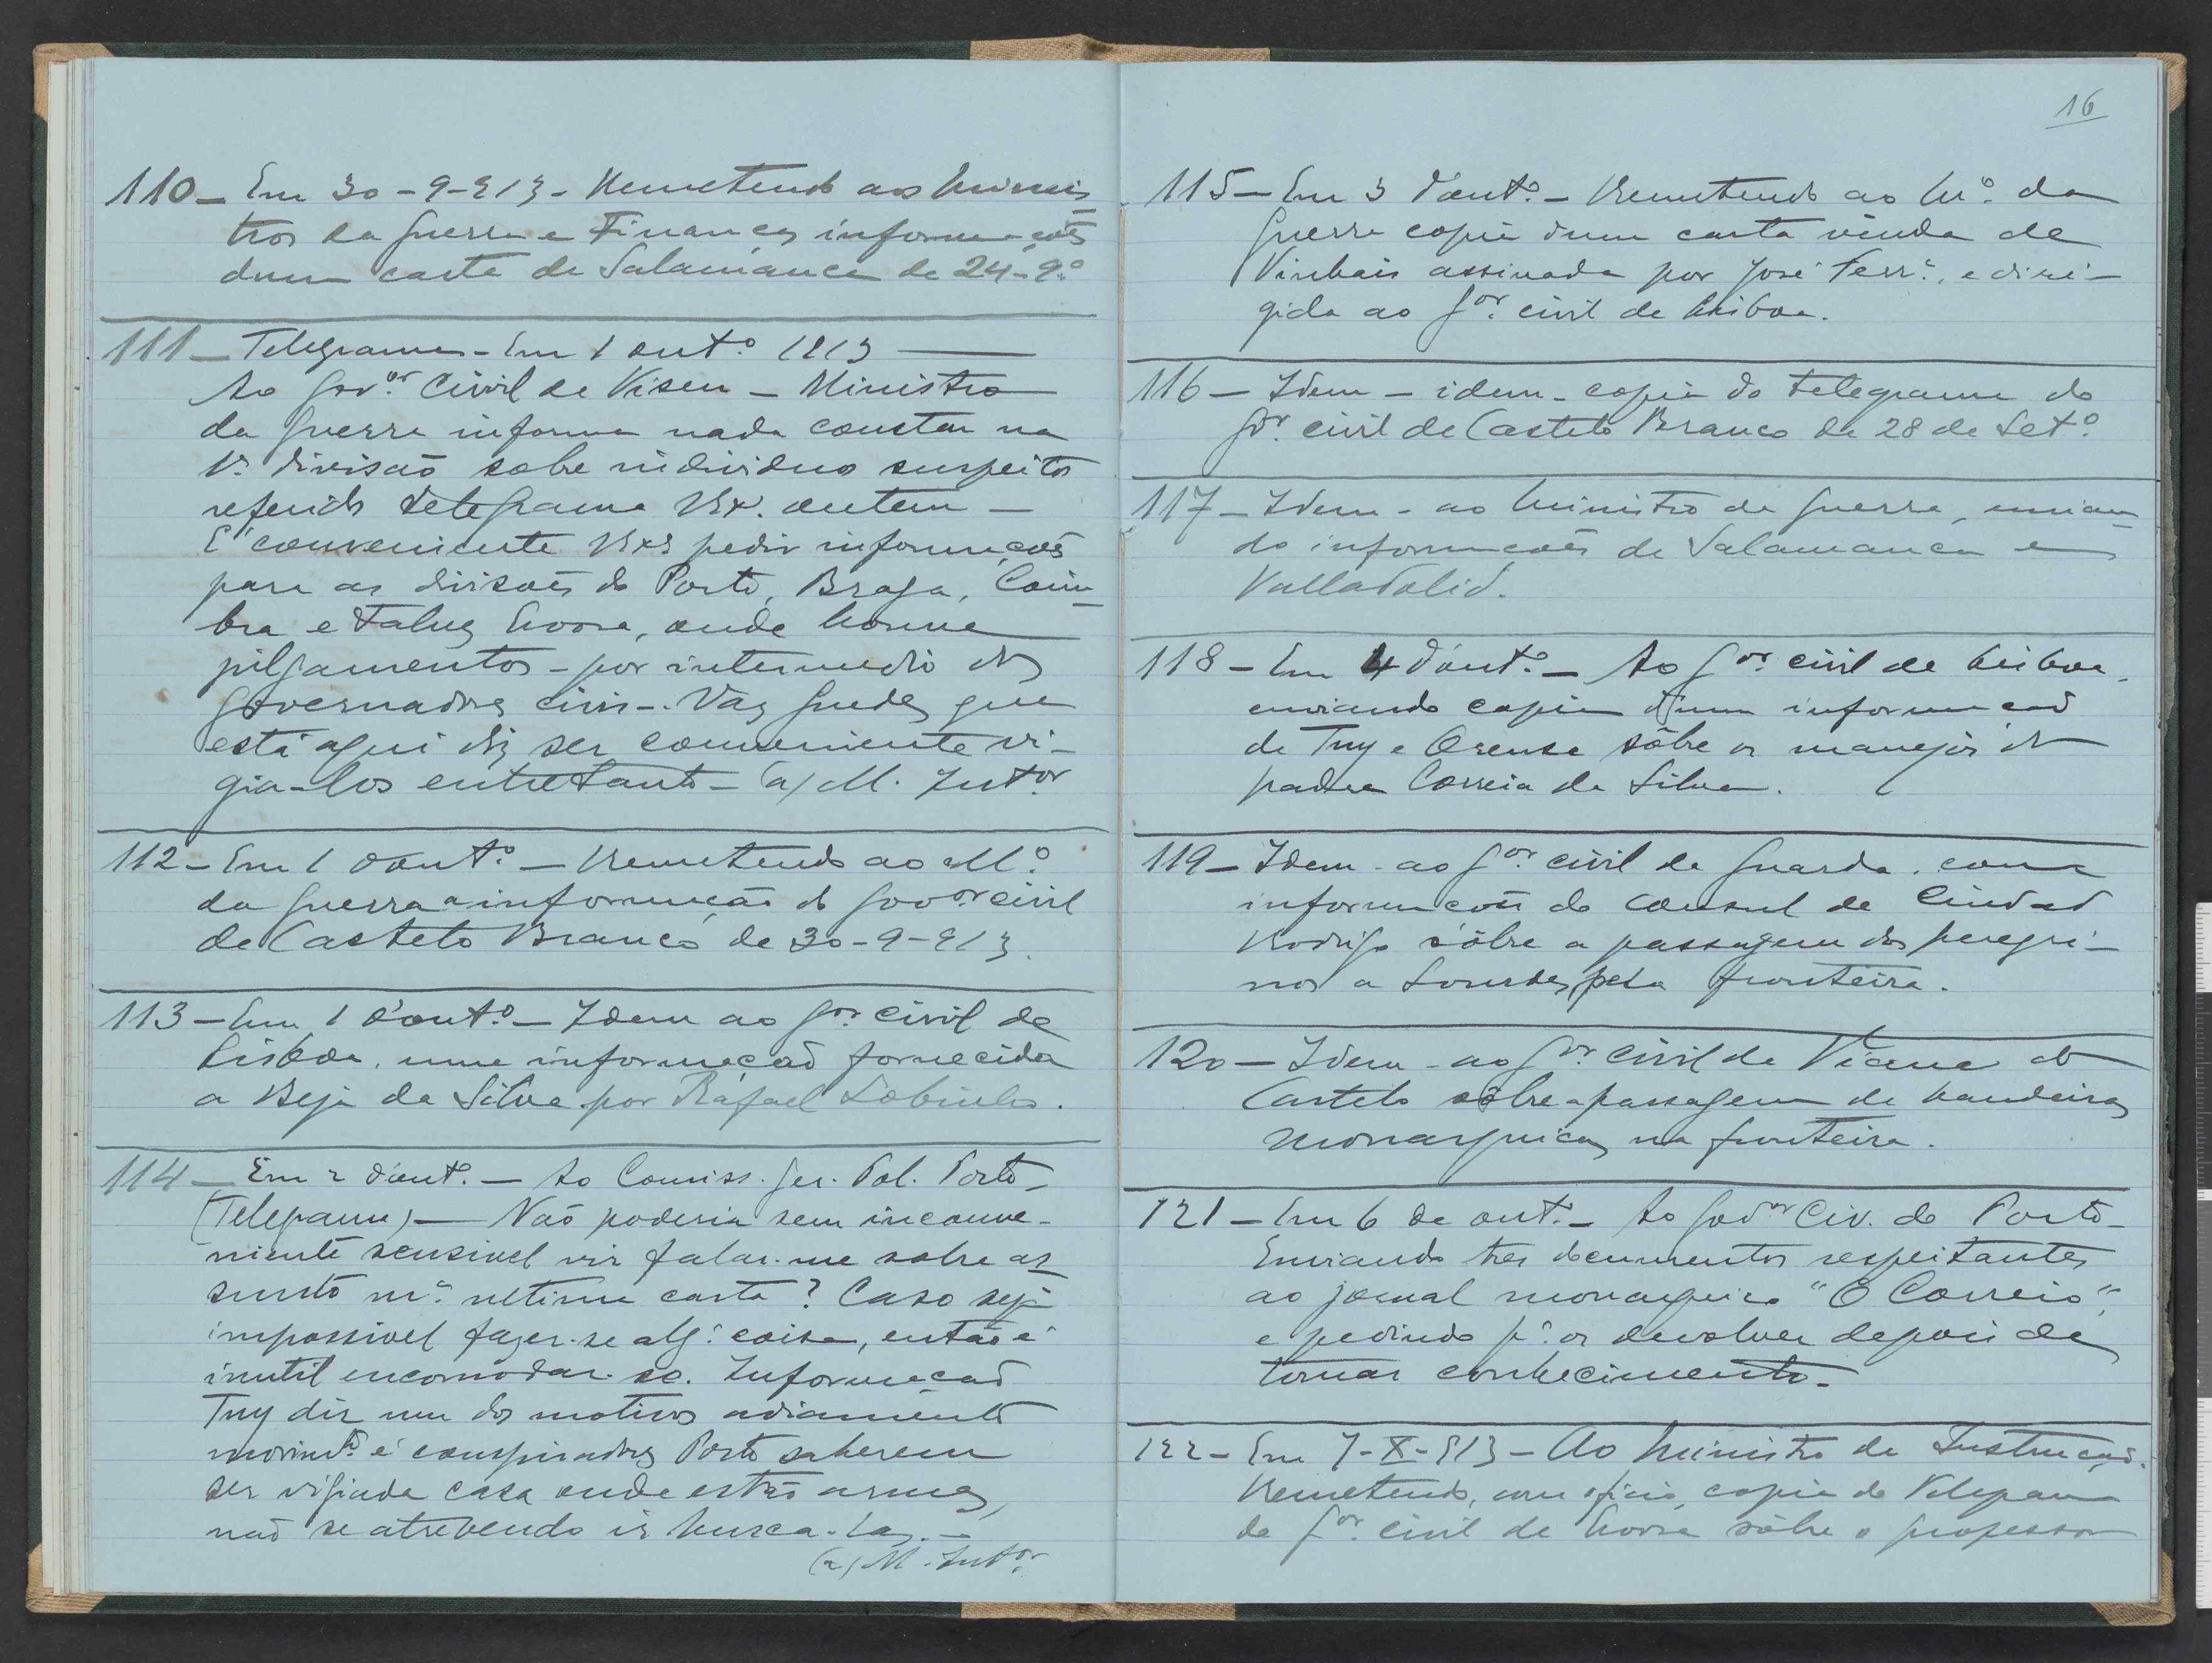 110 - Em 30-9-913 - Remetendo aos Minis-
tros da Guerra e Finanças informações
duma carta de Salamanca de 24-9.º
111 - Telegrama - Em 1 out.º 1913 -
Ao Gov.or Civil de Viseu - Ministro
da Guerra informa nada constar na
1.ª divisão sobre individuos suspeitos
referido telegrama VEx. ontem -
E' conveniente VExª pedir informações
para as divisões do Porto, Braga, Coim-
bra e talvez Evora, onde houve
julgamentos - por intermedio dos
Governadores civis -. Vaz Guedes que
está aqui diz ser conveniente vi-
gia-los entretanto - (a) M. Int.or
112 - Em 1 d'out.º - Remetendo ao M.º
da Guerra a informação do Gov.or civil
de Castelo Branco de 30-9-913.
113 - Em 1 d'out.º - Idem ao G.or civil de
Lisboa, uma informação fornecida
a Beja da Silva por Rafael Sobrinho.
114 - Em 2 d'out.º - Ao Comiss. Ger. Pol. Porto -
(Telegrama) - Não poderia sem inconve-
niente sensivel vir falar-me sobre as
sunto m.ª ultima carta? Caso seja
impossivel fazer-se alg.ª coisa, então é
inutil encomodar-se. Informação
Tuy diz um dos motivos adiamento
movimt.º é conspiradores Porto saberem
ser vigiada casa onde estão armas,
não se atrevendo ir busca-las. -
(a) M. Int.or
16
115 - Em 3 d'out.º - Remetendo ao M.º da
Guerra copia duma carta vinda de
Vinhais assinada por José Ferr.ª, e diri-
gida ao G.or civil de Lisboa.
116 - Idem - idem - copia do telegrama do
G.or civil de Castelo Branco de 28 de Set.º
117 - Idem - ao Ministro da Guerra, envian-
do informações de Salamanca e
Valladolid.
118 - Em 4 d'out.º - Ao G.or civil de Lisboa,
enviando copia d'uma informação
de Tuy e Orense sôbre os manejos do
padre Correia da Silva.
119 - Idem - ao G.or civil da Guarda, com
informações do consul de Ciudad
Rodrigo sôbre a passagem dos peregri-
nos a Lourdes, pela fronteira.
120 - Idem - ao G.or civil de Viana do
Castelo sôbre a passagem de bandeiras
monarquicas na fronteira.
121 - Em 6 de out.º - Ao Gov.or Civ. do Porto -
Enviando tres documentos respeitantes
ao jornal monarquico "O Correio",
e pedindo p.ª os devolver depois de
tomar conhecimento -
122 - Em 7-X-913 - Ao Ministro da Instrução.
Remetendo, com oficio, copia do telegrama
do G.or civil de Evora sôbre o professor